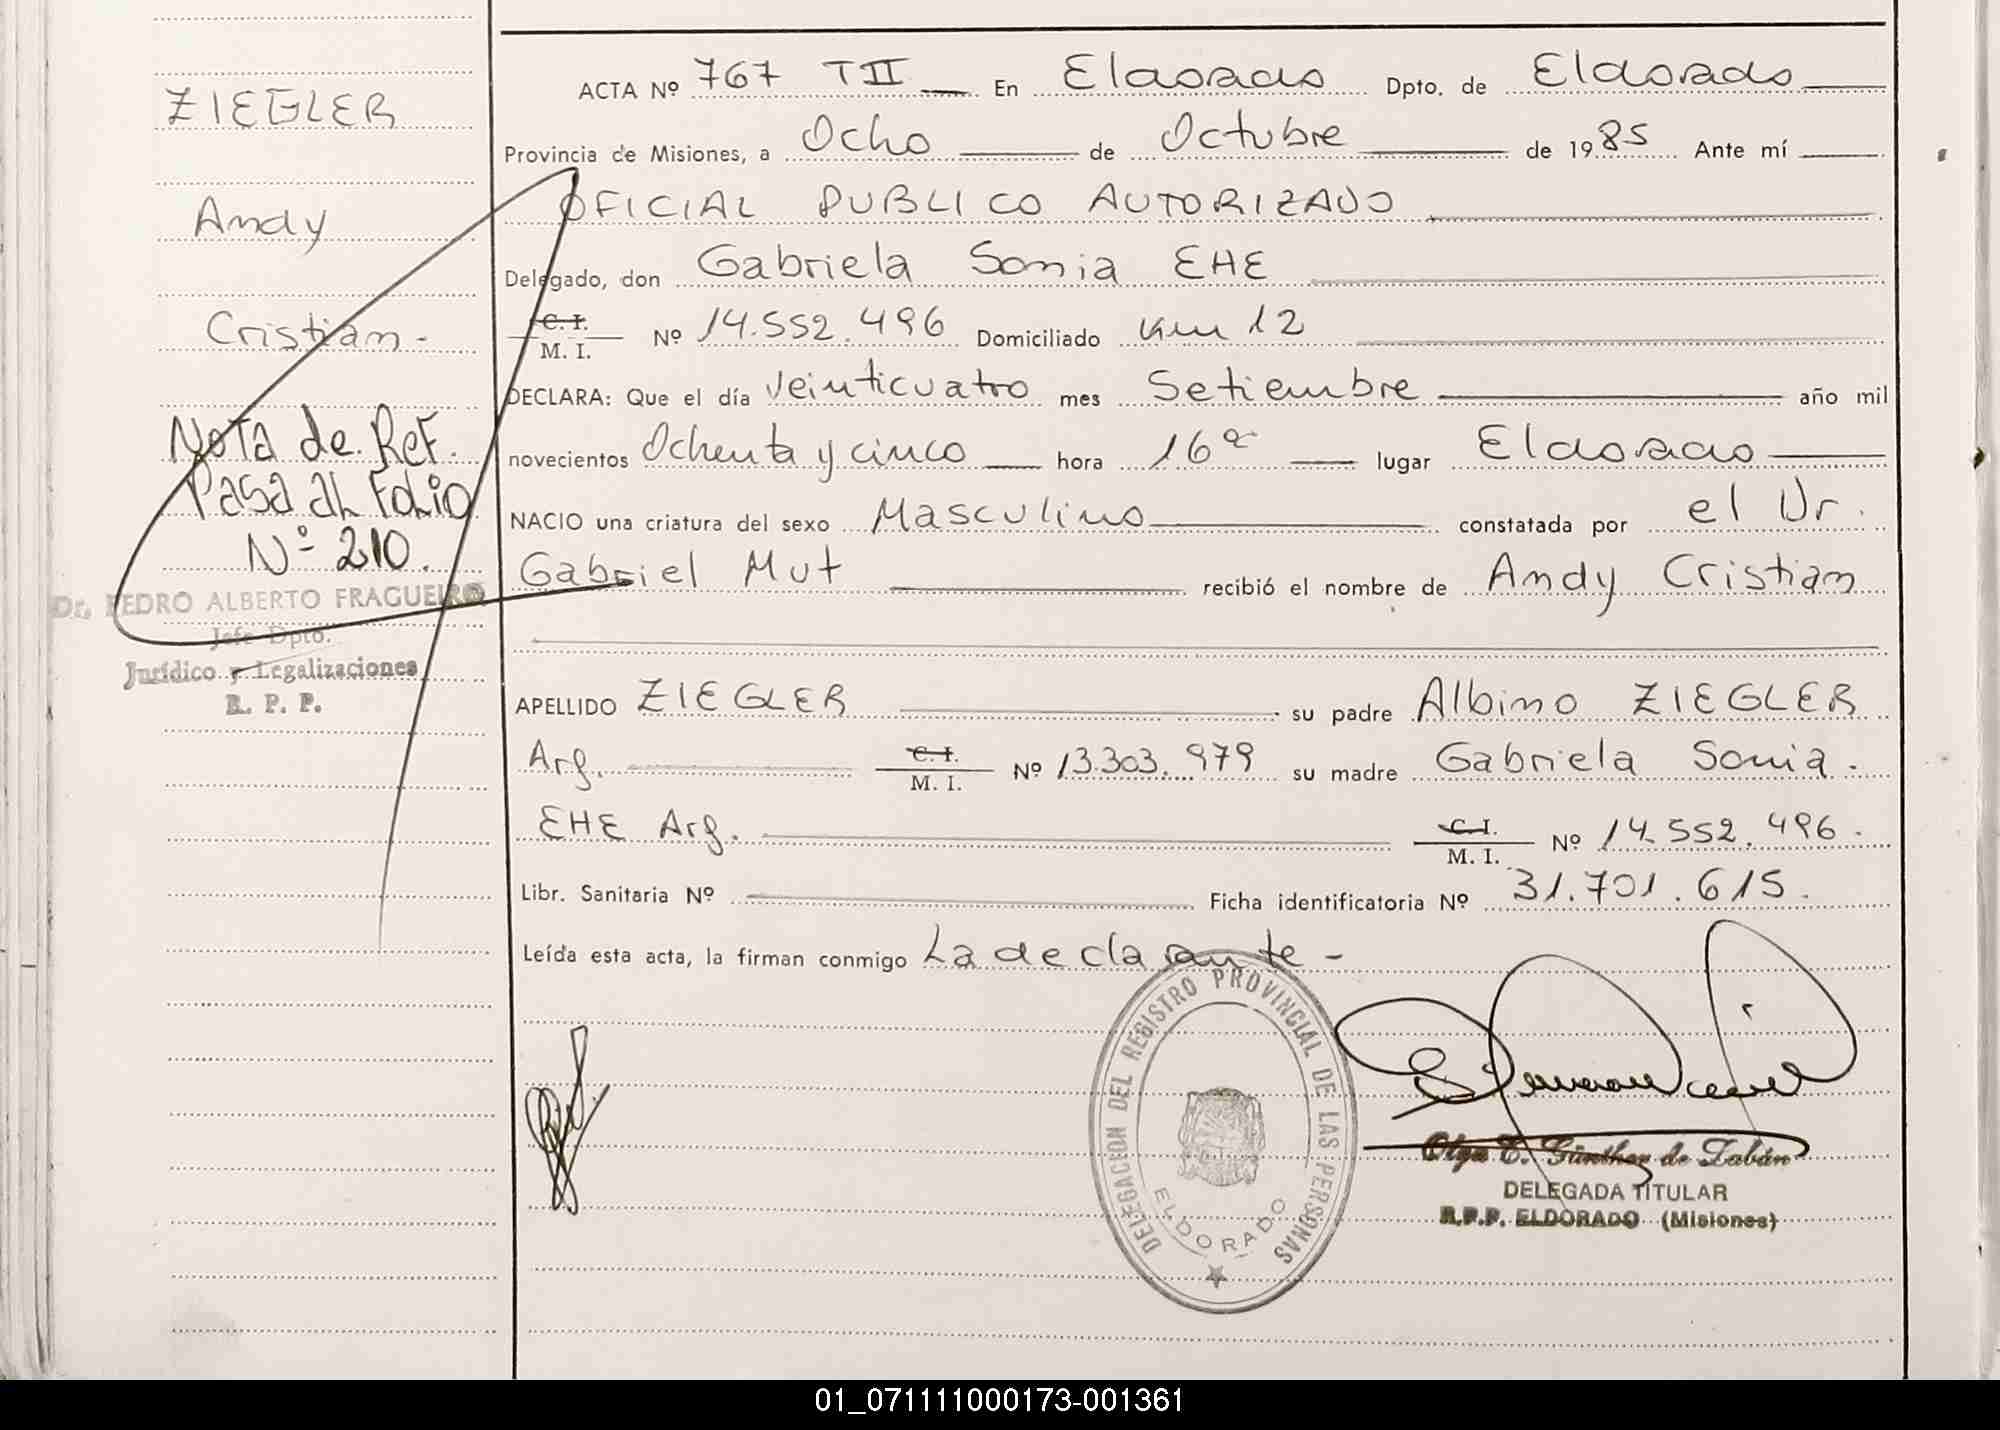 ZIEGLER
Andy
Cristian -
Nota de Ref.
Pasa al Folio
Nº 210.
Dr. PEDRO ALBERTO FRAGUEIRO
Jefe Dpto.
Jurídico y Legalizaciones
R. P. P.
ACTA Nº 767 TII En Eldorado Dpto. de Eldorado
Provincia de Misiones, a Ocho de Octubre de 1985 Ante mí
OFICIAL PUBLICO AUTORIZADO
Delegado, don Gabriela Sonia EHE
C. I. M. I. Nº 14.552.496 Domiciliado Km 12
DECLARA: Que el día Veinticuatro mes Setiembre año mil
novecientos Ochenta y cinco hora 16 lugar Eldorado
NACIO una criatura del sexo Masculino constatada por el Dr.
Gabriel Mut recibió el nombre de Andy Cristian
APELLIDO ZIEGLER su padre Albino ZIEGLER
Arg. C. I. M. I. Nº 13.303.979 su madre Gabriela Sonia.
EHE Arg. C. I. M. I. Nº 14.552.496.
Libr. Sanitaria Nº Ficha identificatoria Nº 31.701.615.
Leída esta acta, la firman conmigo La declarante -
DELEGACION DEL REGISTRO PROVINCIAL DE LAS PERSONAS
ELDORADO
Olga E. Günther de Zabán
DELEGADA TITULAR
R.P.P. ELDORADO (Misiones)
01_071111000173-001361